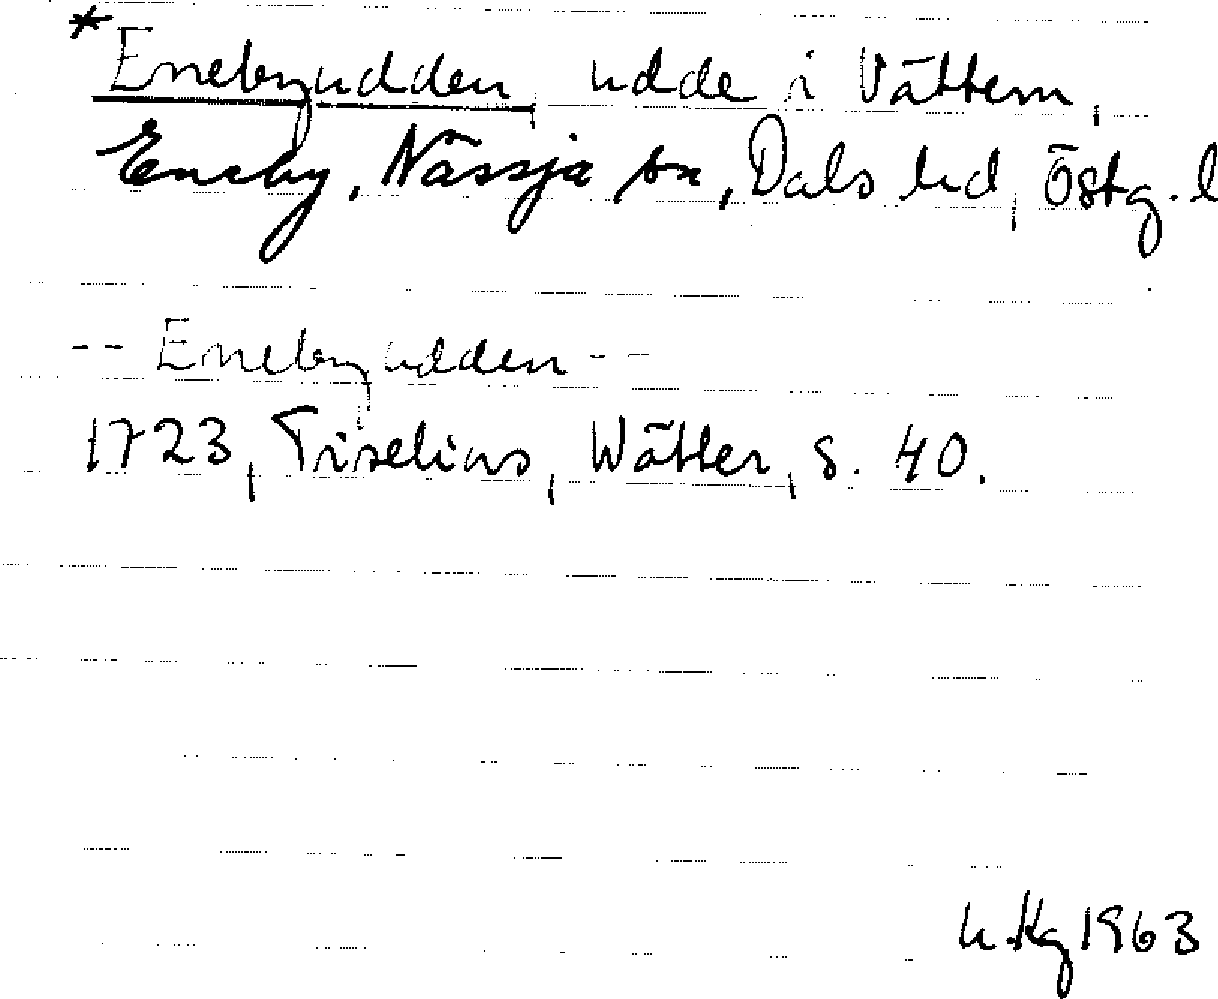 *Enebyudden, udde i Vättern,
Eneby, Nässja sn, Dals hd, Östg. l
-- Enebyudden --
1723, Tiselius, Wätter, s. 40.
h.Kg 1963